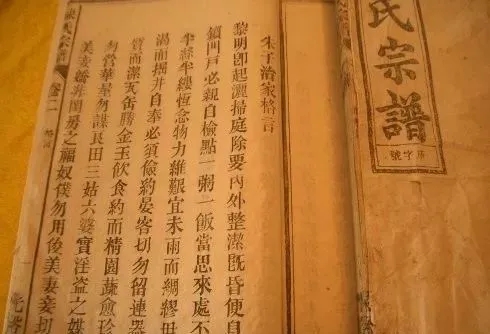 氏宗譜
字號
朱子治家格言
黎明卽起灑掃庭除要內外整潔旣昏便自
鎖門戶必親自檢點一粥一飯當思來處不
半絲半縷恆念物力維艱宜未雨而綢繆毋
渴而掘井自奉必須儉約晏客切勿留連器
質而潔瓦缶勝金玉飲食約而精園蔬愈珍
勿營華屋勿謀良田三姑六婆實淫盜之媒
美妾嬌非閨房之福奴僕勿用俊美妻妾切
氏宗譜 卷二 格言